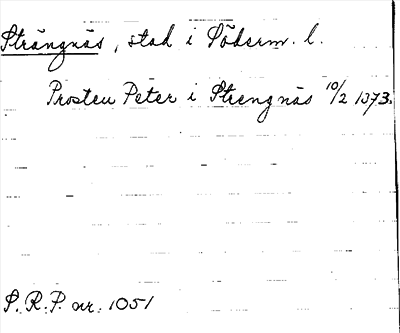 Strängnäs, stad i Söderm. l.
Prosten Peter i Strengnäs 10/2 1373.
S. R. P. nr. 1051